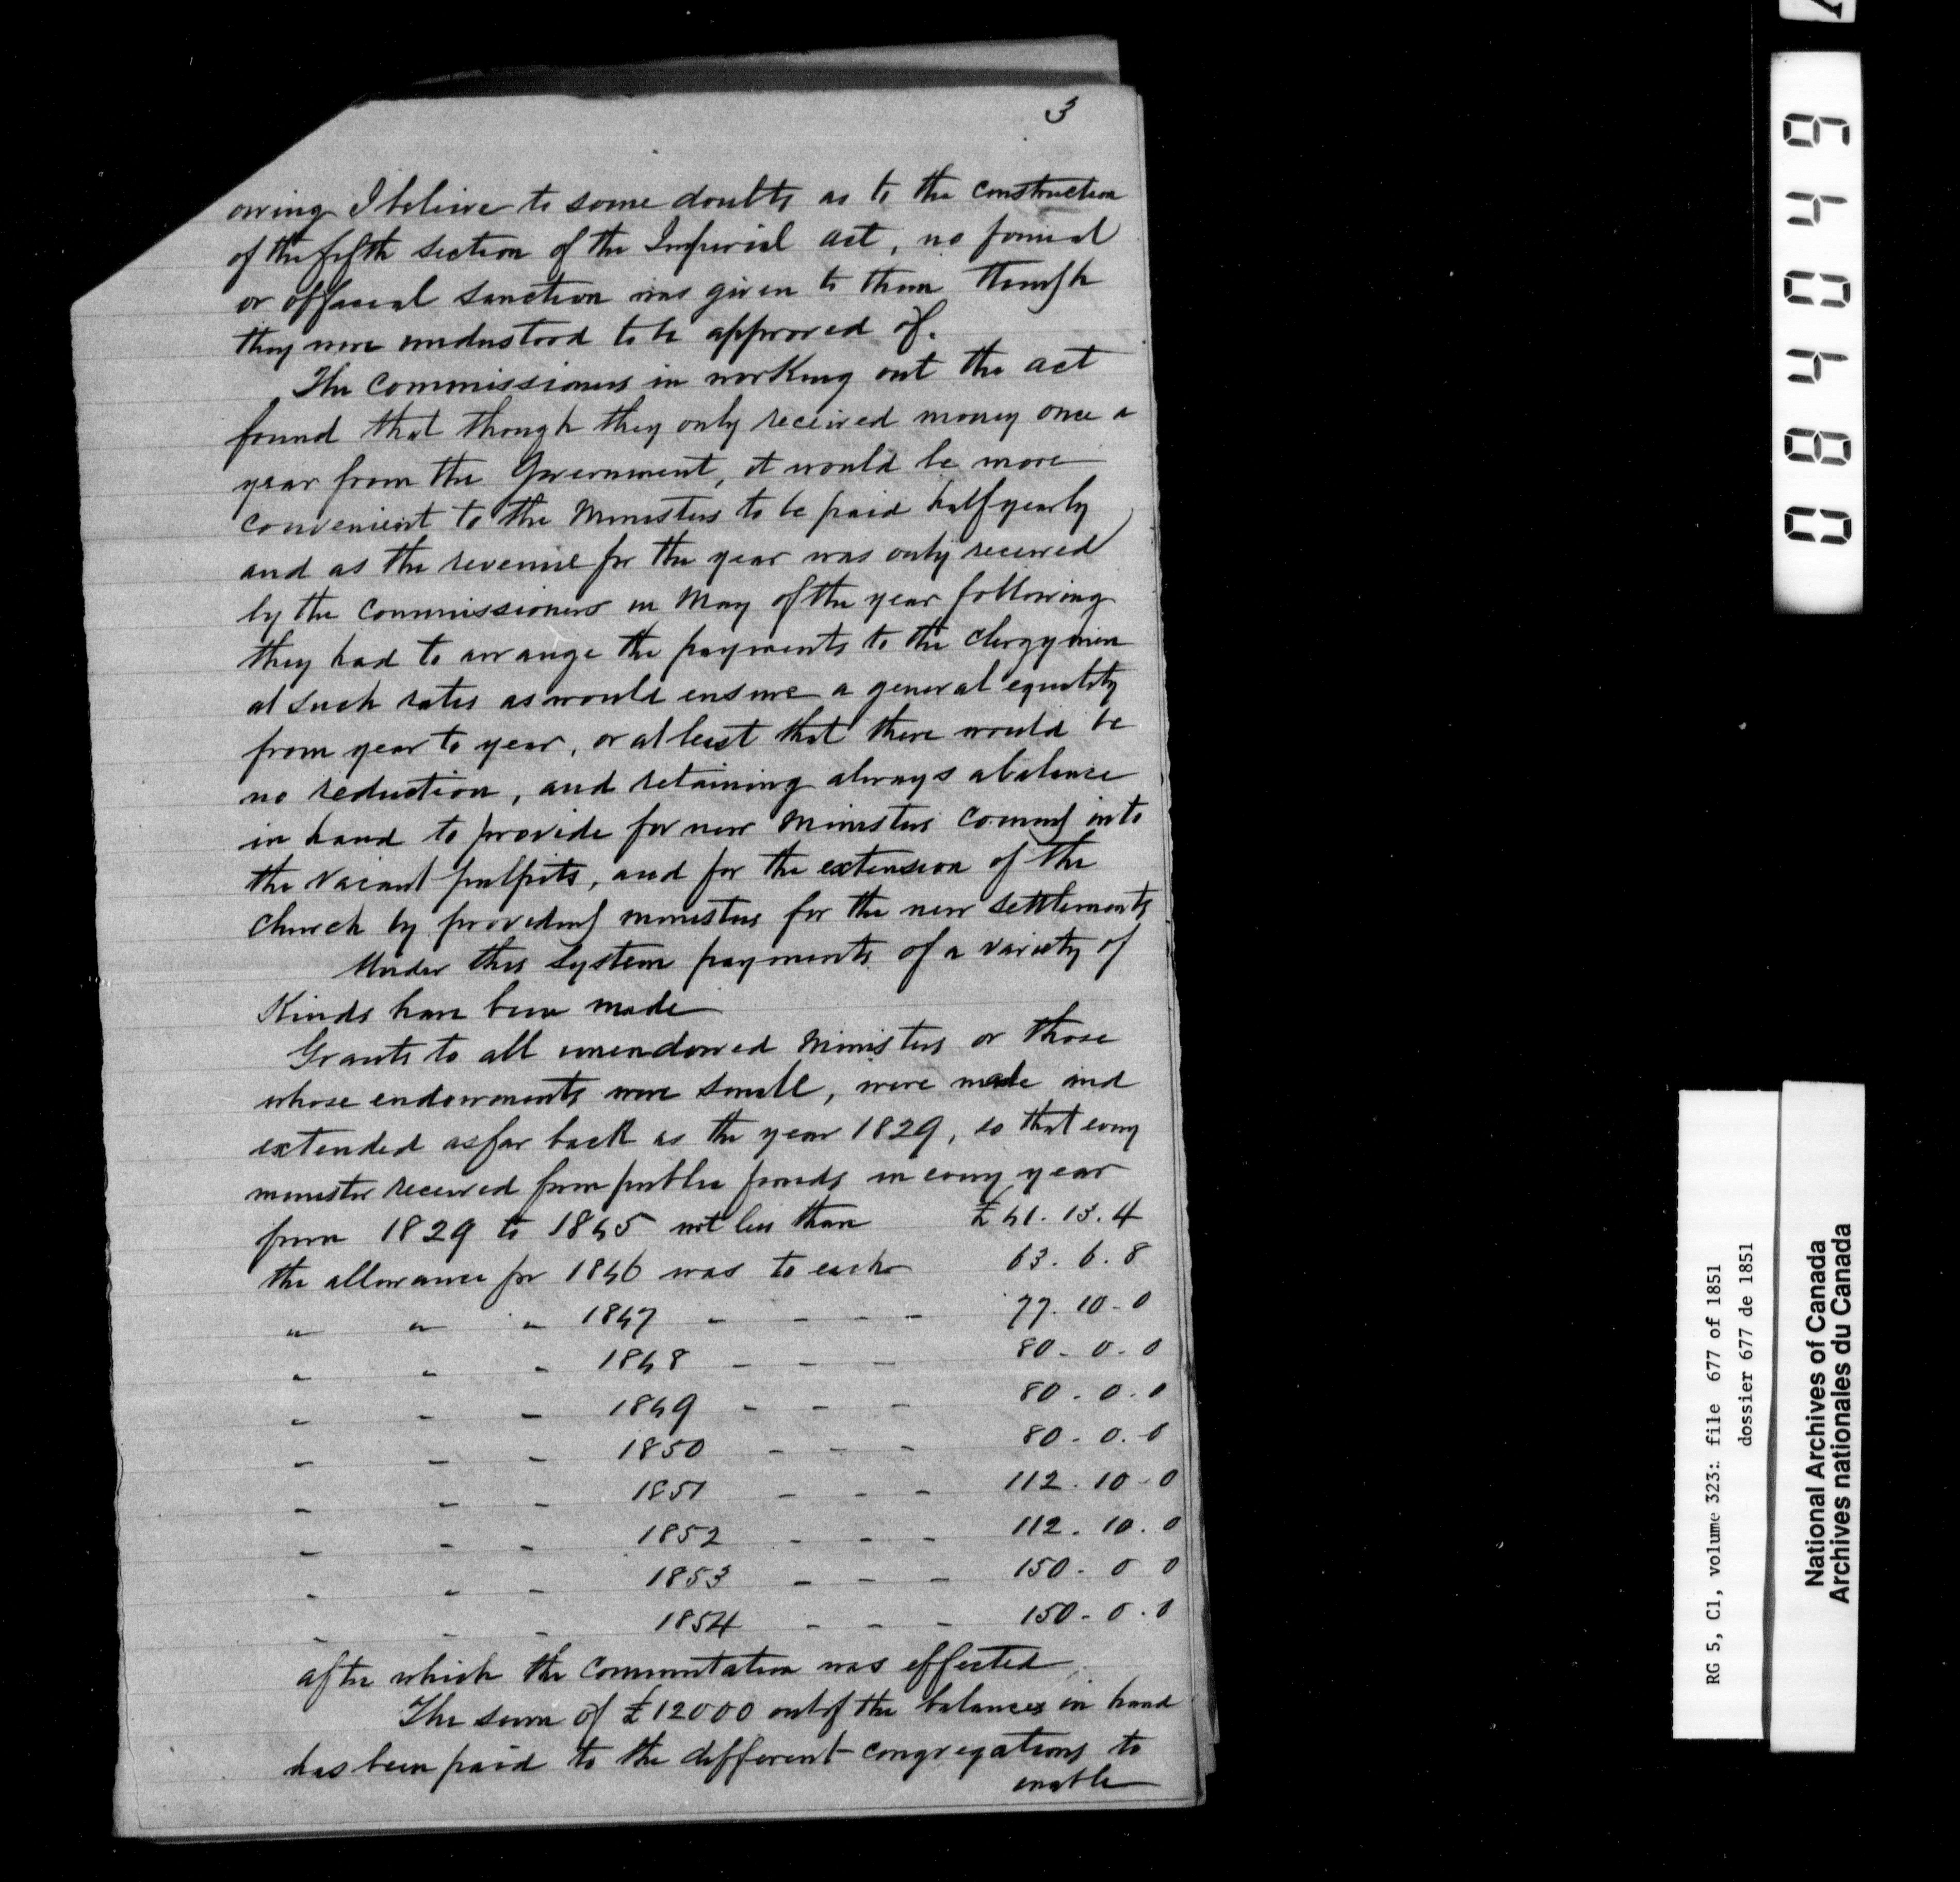 3
owing I believe to some doubts as to the construction
of the fifth section of the Imperial act, no formal
or official sanction was given to them though
they were understood to be approved of.
The Commissioners in working out the act
found that though they only received money once a
year from the Government, it would be more
convenient to the Ministers to be paid half yearly
and as the revenue for the year was only received
by the Commissioners in May of the year following
they had to arrange the payments to the clergymen
at such rates as would ensure a general equality
from year to year, or at least that there would be
no reduction, and retaining always a balance
in hand to provide for new Ministers coming into
the vacant pulpits, and for the extension of the
church by providing ministers for the new settlements
Under this system payments of a variety of
Kinds have been made
Grants to all unendowed Ministers or those
whose endowments were small, were made and
extended as far back as the year 1829, so that every
minister received from public funds in every year
from 1829 to 1845 not less than £41. 13. 4
the allowance for 1846 was to each 63. 6. 8
" " " 1847 - - - - 77. 10 - 0
" " " 1848 - - - 80 - 0 - 0
" " " 1849 - - - 80 - 0 . 0
" " " 1850 - - - 80 - 0. 0
" " " 1851 - - - 112 . 10 - 0
" " " 1852 - - - 112 . 10 . 0
" " " 1853 - - - 150 - 0 0
" " " 1854 - - - 150 - 0 . 0
after which the Commutation was effected.
The sum of £12000 out of the balances in hand
has been paid to the different congregations to
enable
084049
RG 5, C1, volume 323: file 677 of 1851
dossier 677 de 1851
National Archives of Canada
Archives nationales du Canada